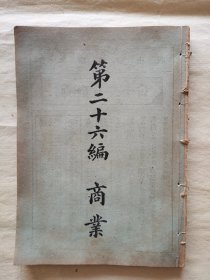 第二十六編 商業